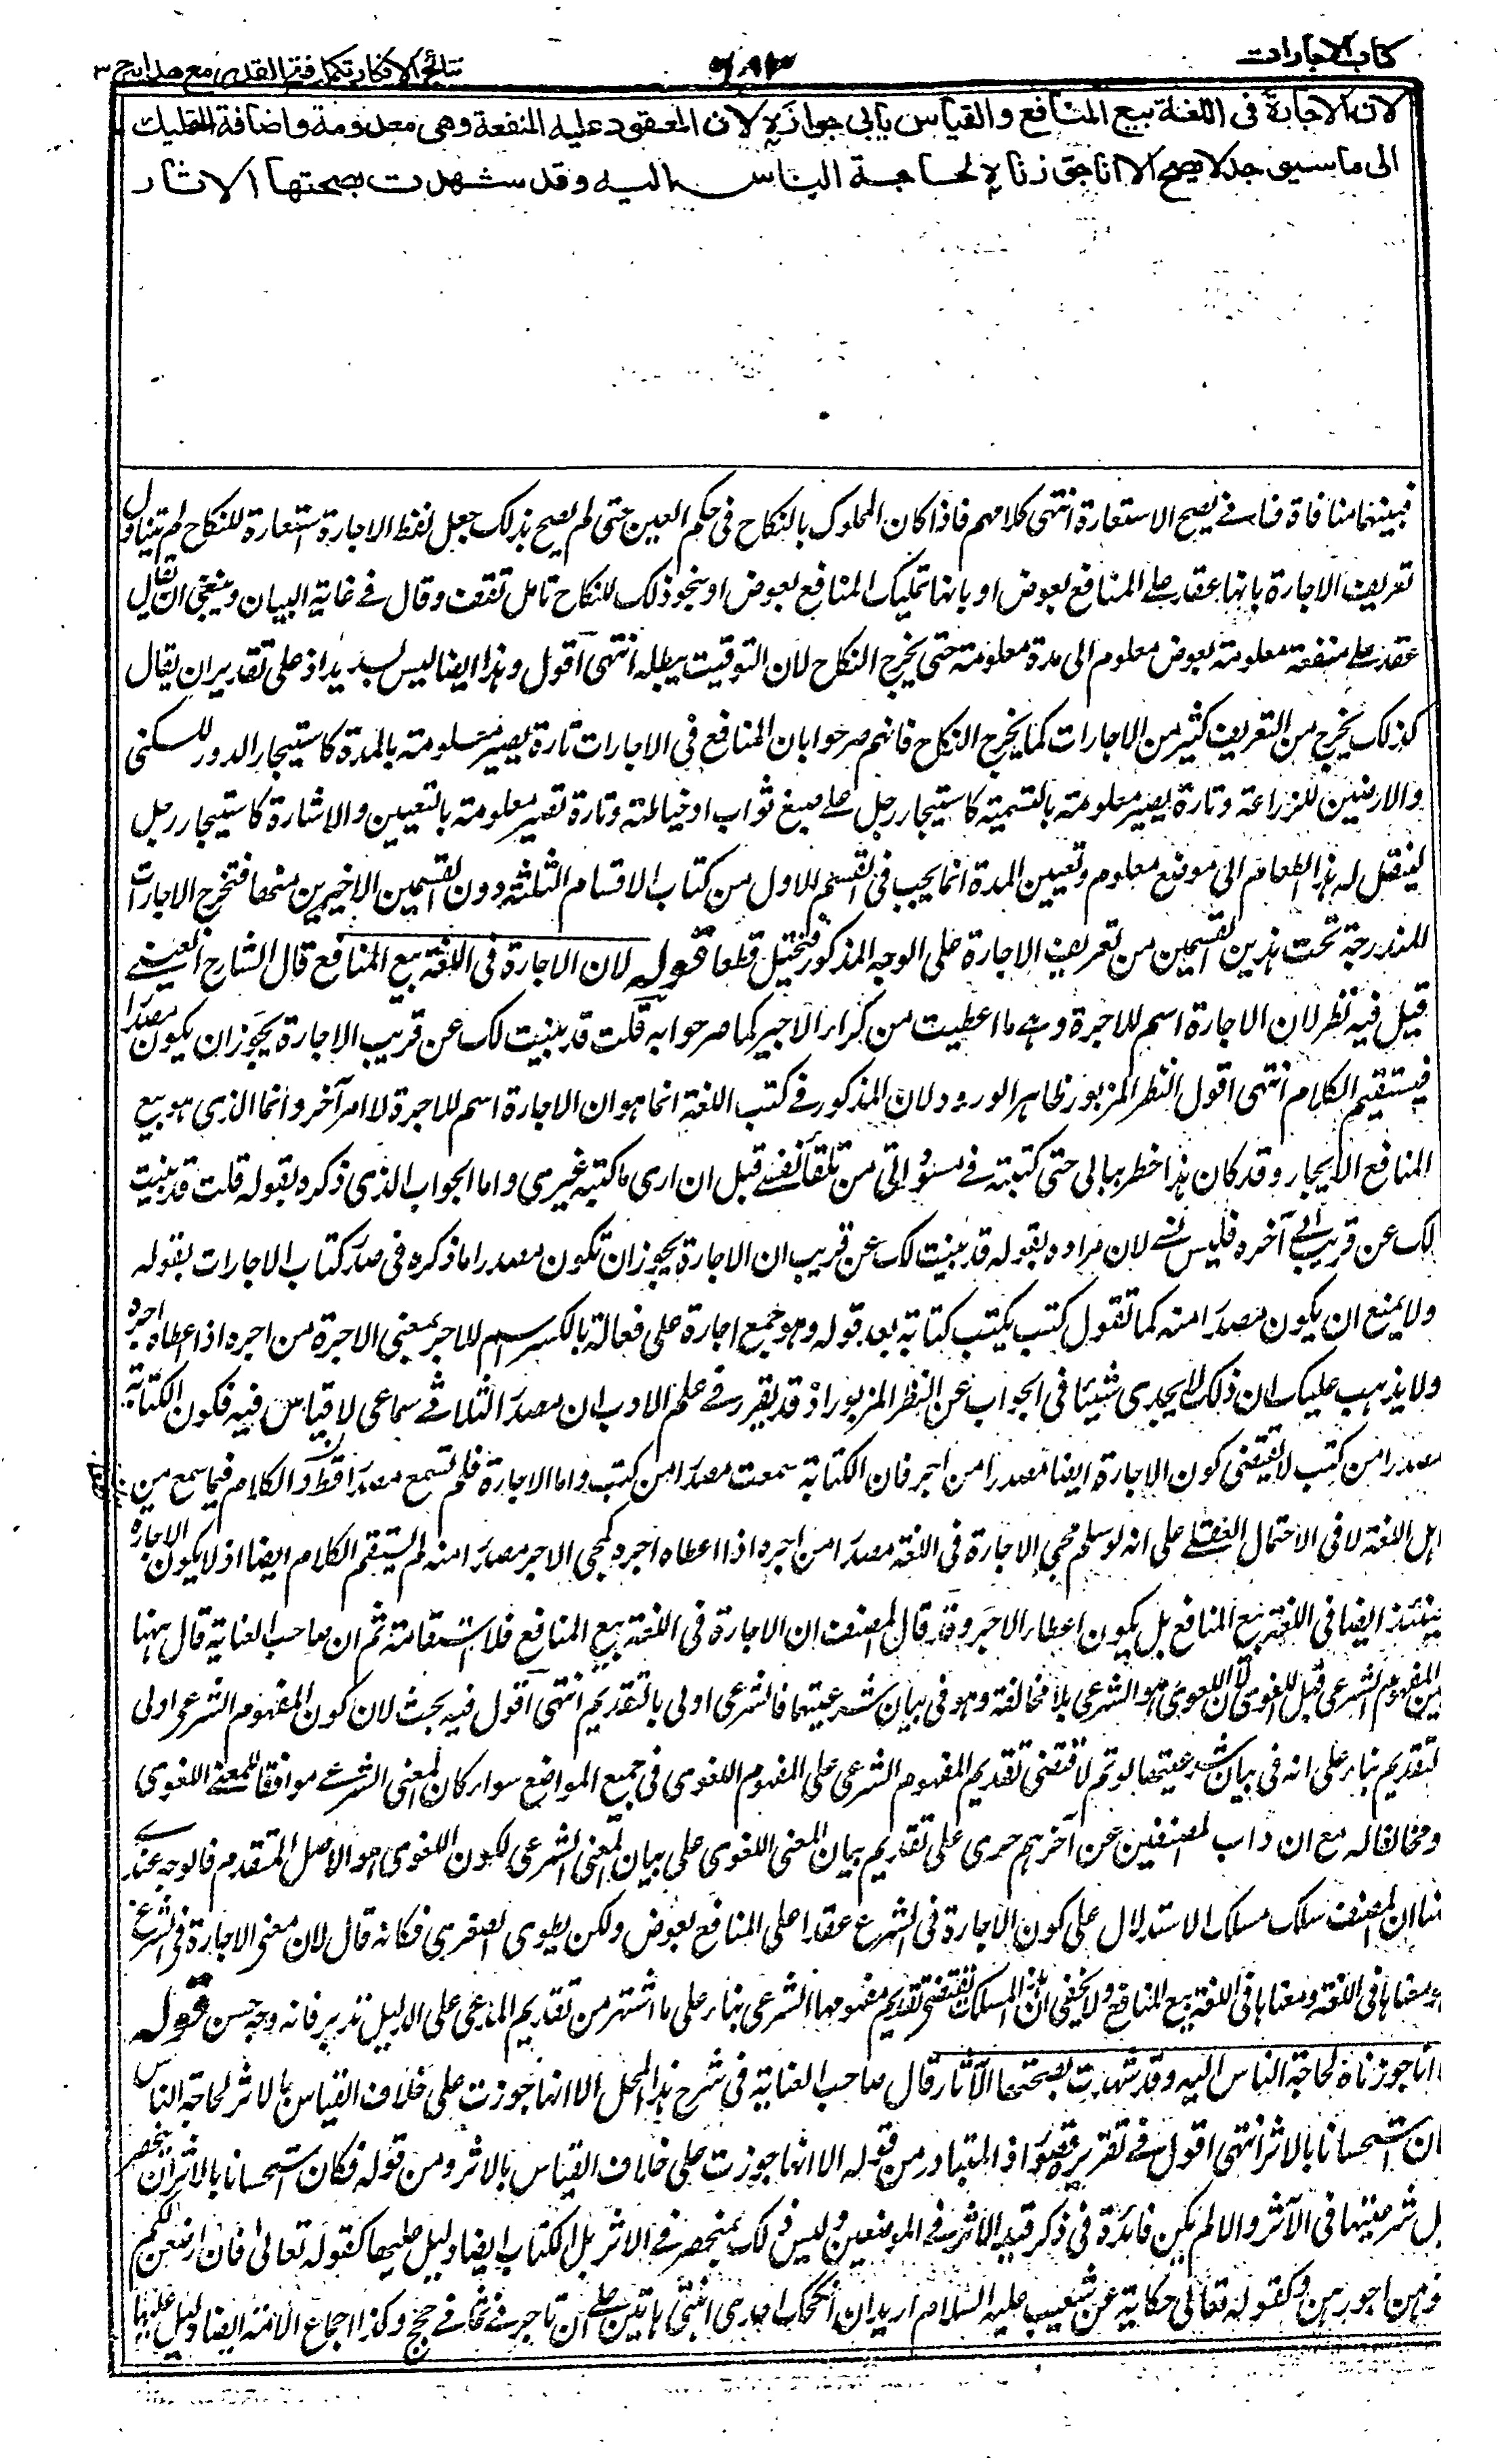 كتاب الاجارات
نتائج الافكار تكملة فتح القدير مع هدايه ج ٣
لان الاجارة فى اللغة بيع المنافع والقياس يأبى جوازه لان المعقود عليه المنفعة وهى معدومة واضافة التمليك
الى ما سيوجد لا يصح الا انا جوزناه لحاجة الناس اليه وقد شهدت بصحتها الاثار
فبينهما منافاة فانى يصح الاستعارة انتهى كلامهم فاذا كان المملوك بالنكاح فى حكم العين حتى لم يصح بذلك جعل لفظ الاجارة استعارة للنكاح لم يتناول
تعريف الاجارة بانها عقد على المنافع بعوض او بانها تمليك المنافع بعوض او بنحو ذلك للنكاح تامل تقف وقال فى غاية البيان وينبغى ان يقال
عقد على منفعة معلومة بعوض معلوم الى مدة معلومة حتى يخرج النكاح لان التوقيت يبطله انتهى اقول وهذا ايضا ليس بسديد اذ على تقدير ان يقال
كذلك يخرج من التعريف كثير من الاجارات كما يخرج النكاح فانهم صرحوا بان المنافع فى الاجارات تارة يصير معلومة بالمدة كاستيجار الدور للسكنى
والارضين للزراعة وتارة يصير معلومة بالتسمية كاستيجار رجل على صبغ ثواب او خياطته وتارة تصير معلومة بالتعيين والاشارة كاستيجار رجل
لينقل له هذا الطعام الى موضع معلوم وتعيين المدة انما يجب فى القسم الاول من كتاب الاقسام الثلثة دون القسمين الاخيرين منها فتخرج الاجارات
المندرجة تحت هذين القسمين من تعريف الاجارة على الوجه المذكور فتختل قطعا قوله لان الاجارة فى اللغة بيع المنافع قال الشارح العينى
قيل فيه نظر لان الاجارة اسم للاجرة وهى ما اعطيت من كراء الاجير كما صرحوا به قلت قد بينت لك عن قريب الاجارة يجوز ان يكون مصدرا
فيستقيم الكلام انتهى اقول النظر المزبور ظاهر الورود لان المذكور فى كتب اللغة انما هو ان الاجارة اسم للاجرة لا امر آخر وانما الذى هو بيع
المنافع الايجار وقد كان هذا خطر ببالى حتى كتبته فى مسوداتى من تلقاء نفسى قبل ان ارى ما كتبه غيرى واما الجواب الذى ذكره بقوله قلت قد بينت
لك عن قريب الى آخره فليس بشئ لان مراده بقوله قد بينت لك عن قريب ان الاجارة يجوز ان تكون مصدرا ما ذكره فى صدر كتاب الاجارات بقوله
ولا يمنع ان يكون مصدرا منه كما تقول كتب يكتب كتابة بعد قوله وهو جمع اجارة على فعالة بالكسر اسم للاجر بمعنى الاجرة من اجره اذا اعطاه اجره
ولا يذهب عليك ان ذلك لا يجدى شيئا فى الجواب عن النظر المزبور اذ قد تقرر فى علم الادب ان مصدر الثلاثى سماعى لا قياس فيه فكون الكتابة
مصدرا من كتب لا يقتضى كون الاجارة ايضا مصدرا من اجر فان الكتابة سمعت مصدرا من كتب واما الاجارة فلم تسمع مصدرا قط والكلام فيما سمع من
اهل اللغة لا فى الاحتمال العقلى على انه لو سلم مجئ الاجارة فى اللغة مصدرا من اجره اذا اعطاه اجره كمجئ الاجر مصدرا منه لم يستقم الكلام ايضا اذ لا يكون الاجارة
حينئذ ايضا فى اللغة بيع المنافع بل يكون اعطاء الاجر وقد قال المصنف ان الاجارة فى اللغة بيع المنافع فلا استقامة ثم ان صاحب العناية قال ههنا
بين المفهوم الشرعى قبل اللغوى لان اللغوى هو الشرعى بلا مخالفة وهو فى بيان شرعيتها فالشرعى اولى بالتقديم انتهى اقول فيه بحث لان كون المفهوم الشرعى اولى
بتقديم بناء على انه فى بيان شرعيتها لو تم لاقتضى تقديم المفهوم الشرعى على المفهوم اللغوى فى جميع المواضع سواء كان المعنى الشرعى موافقا للمعنى اللغوى
ومخالفا له مع ان داب المصنفين عن آخرهم جرى على تقديم بيان المعنى اللغوى على بيان المعنى الشرعى لكون اللغوى هو الاصل المتقدم فالوجه عندى
هنا ان المصنف سلك مسلك الاستدلال على كون الاجارة فى الشرع عقدا على المنافع بعوض ولكن بطوى الصغرى فكانه قال لان معنى الاجارة فى الشرع
هو معناها فى اللغة ومعناها فى اللغة بيع المنافع ولا يخفى ان هذا المسلك يقتضى تقديم مفهومها الشرعى بناء على ما اشتهر من تقديم المدعى على الدليل تدبر فانه وجه حسن قوله
الا انا جوزناه لحاجة الناس اليه وقد شهدت بصحتها الآثار قال صاحب العناية فى شرح هذا المحل الا انها جوزت على خلاف القياس بالاثر لحاجة الناس
ان استحسانا بالاثر انتهى اقول فى تقريره قصور اذ المتبادر من قوله الا انها جوزت على خلاف القياس بالاثر ومن قوله فكان استحسانا بالاثر ان ينحصر
دليل شرعيتها فى الآثر والا لم يكن فائدة فى ذكر قيد الاثر فى الموضعين وليس ذلك بمنحصر فى الاثر بل الكتاب ايضا دليل عليها كقوله تعالى فان ارضعن لكم
فآتوهن اجورهن وكقوله تعالى حكاية عن شعيب عليه السلام اريد ان انكحك احدى ابنتى هاتين على ان تاجرنى ثمانى حجج وكذا اجماع الامة ايضا دليل عليها